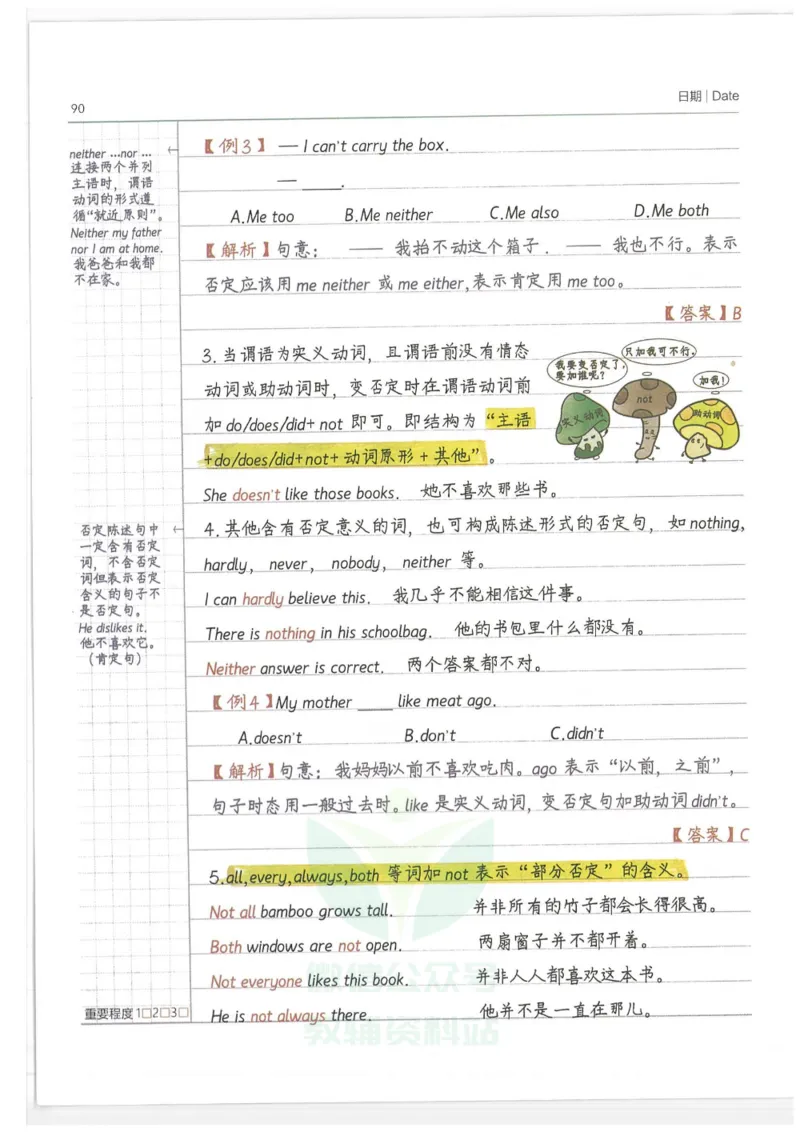 90
日期 | Date
neither ...nor ...
连接两个并列
主语时，谓语
动词的形式遵
循“就近原则”。
Neither my father
nor I am at home.
我爸爸和我都
不在家。
【例3】 — I can't carry the box.
— ____.
A.Me too B.Me neither C.Me also D.Me both
【解析】句意： —— 我抬不动这个箱子． —— 我也不行。表示
否定应该用 me neither 或 me either,表示肯定用 me too。
【答案】B
3.当谓语为实义动词，且谓语前没有情态
动词或助动词时，变否定时在谓语动词前
加 do/does/did+ not 即可。即结构为“主语
+do/does/did+not+ 动词原形 + 其他”。
我要变否定了,
要加谁呢?
只加我可不行,
加我!
实义动词
not
助动词
She doesn't like those books. 她不喜欢那些书。
否定陈述句中
一定含有否定
词，不含否定
词但表示否定
含义的句子不
是否定句。
He dislikes it.
他不喜欢它。
（肯定句）
4.其他含有否定意义的词，也可构成陈述形式的否定句，如 nothing,
hardly, never, nobody, neither 等。
I can hardly believe this. 我几乎不能相信这件事。
There is nothing in his schoolbag. 他的书包里什么都没有。
Neither answer is correct. 两个答案都不对。
【例4】My mother ____ like meat ago.
A.doesn't B.don't C.didn't
【解析】句意：我妈妈以前不喜欢吃肉。ago 表示“以前，之前”，
句子时态用一般过去时。like 是实义动词，变否定句加助动词 didn't。
【答案】C
5.all,every,always,both 等词加 not 表示“部分否定”的含义。
Not all bamboo grows tall. 并非所有的竹子都会长得很高。
Both windows are not open. 两扇窗子并不都开着。
Not everyone likes this book. 并非人人都喜欢这本书。
He is not always there. 他并不是一直在那儿。
重要程度 1□2□3□
微信公众号
教辅资料站